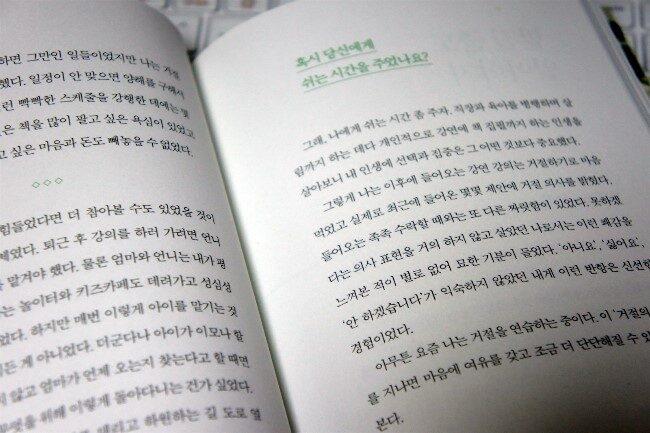 하면 그만인 일들이었지만 나는 거절
했다. 일정이 안 맞으면 양해를 구해서
런 빡빡한 스케줄을 강행한 데에는 몇
은 책을 많이 팔고 싶은 욕심이 있었고
고 싶은 마음과 돈도 빼놓을 수 없었다.
힘들었다면 더 참아볼 수도 있었을 것이
제였다. 퇴근 후 강의를 하러 가려면 언니
를 맡겨야 했다. 물론 엄마와 언니는 내가 평
는 놀이터와 키즈카페도 데려가고 성심성
었다. 하지만 매번 이렇게 아이를 맡기는 것
든 게 아니었다. 더군다나 아이가 이모나 할
지 않고 엄마가 언제 오는지 찾는다고 할 때면
무엇을 위해 이렇게 돌아다니는 건가 싶었다.
데리고 하원하는 길 도로 옆
혹시 당신에게
쉬는 시간을 주었나요?
그래, 나에게 쉬는 시간 좀 주자. 직장과 육아를 병행하며 살
림까지 하는 데다 개인적으로 강연에 책 집필까지 하는 인생을
살아보니 내 인생에 선택과 집중은 그 어떤 것보다 중요했다.
그렇게 나는 이후에 들어오는 강연 강의는 거절하기로 마음
먹었고 실제로 최근에 들어온 몇몇 제안에 거절 의사를 밝혔다.
들어오는 족족 수락할 때와는 또 다른 짜릿함이 있었다. 못하겠
다는 의사 표현을 거의 하지 않고 살았던 나로서는 이런 쾌감을
느껴본 적이 별로 없어 묘한 기분이 들었다. '아니요', '싫어요',
'안 하겠습니다'가 익숙하지 않았던 내게 이런 반항은 신선한
경험이었다.
아무튼 요즘 나는 거절을 연습하는 중이다. 이 '거절의
를 지나면 마음에 여유를 갖고 조금 더 단단해질 수 있
본다.